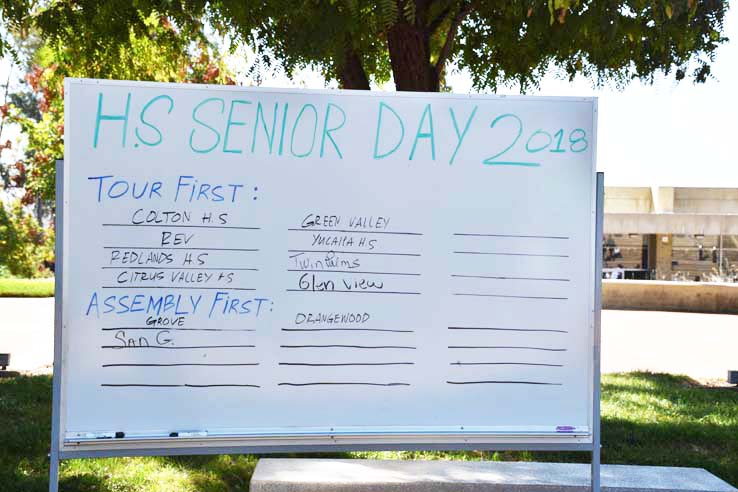 H.S SENIOR DAY 2018
TOUR FIRST:
COLTON H.S GREEN VALLEY
REV YUCAIPA H.S
REDLANDS H.S Twin Palms
CITRUS VALLEY HS Glen View
ASSEMBLY FIRST:
GROVE ORANGEWOOD
SAN G.